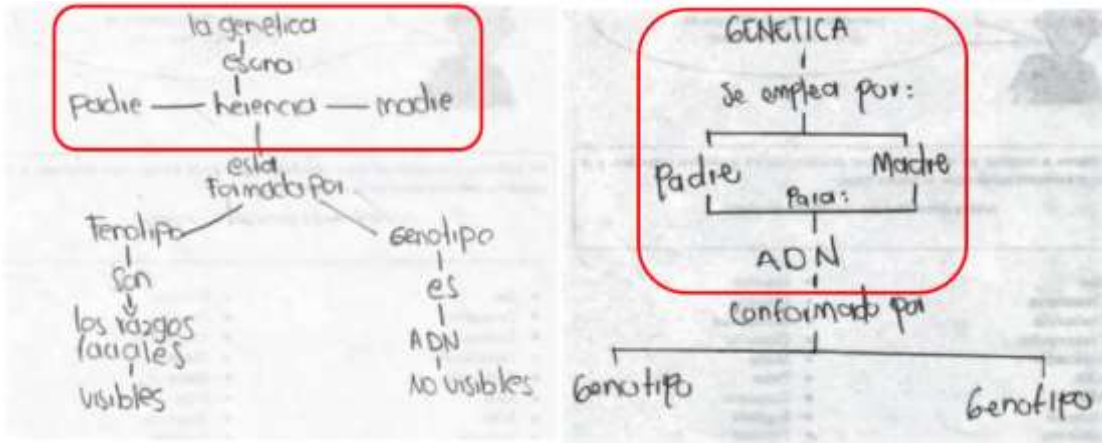 la genetica
es una
Padre herencia madre
esta
Formado por
Fenotipo Genotipo
Son es
los razgos ADN
faciales NO visibles
visibles
GENETICA
Se emplea por:
Padre Madre
Para:
ADN
Conformado por
Genotipo Genotipo